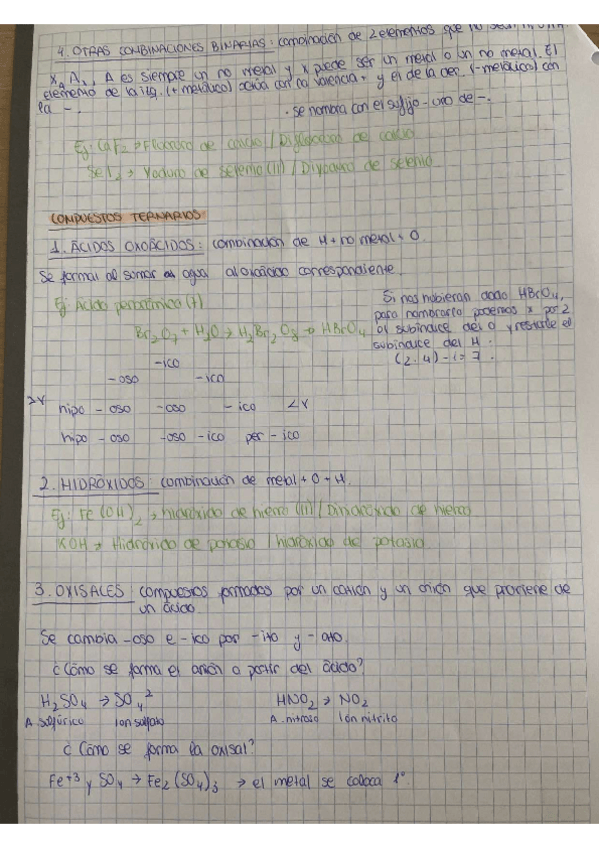 4. OTRAS COMBINACIONES BINARIAS: combinación de 2 elementos que no sean
A es siempre un no metal y x puede ser un metal o un no metal. El
elemento de la izq. (+ metálico) actúa con no valencia + y el de la der. (-metálico) con
la -.
· se nombra con el sufijo -uro de -.
Ej: CaF2 → Fluoruro de calcio / Difluoruro de calcio
SeI2 → Yoduro de selenio (II) / Diyoduro de selenio
COMPUESTOS TERNARIOS
1. ÁCIDOS OXOÁCIDOS: combinación de H + no metal + O.
Se forman al sumar agua al oxácido correspondiente.
Ej: Ácido perbrómico (7)
Br2O7 + H2O → H2Br2O8 → HBrO4
Si nos hubieran dado HBrO4,
para nombrarlo podemos x por 2
al subíndice del O y restarle el
subíndice del H.
(2·4)-1=7.
-ico
-oso -ico
>Y hipo -oso -oso -ico <Y
hipo -oso -oso -ico per -ico
2. HIDRÓXIDOS: combinación de metal + O + H.
Ej: Fe(OH)2 → hidróxido de hierro (II) / Dihidróxido de hierro
KOH → Hidróxido de potasio / hidróxido de potasio
3. OXISALES: compuestos formados por un catión y un anión que proviene de
un ácido.
Se cambia -oso e -ico por -ito y -ato.
¿Cómo se forma el anión a partir del ácido?
H2SO4 → SO4 2 HNO2 → NO2
A. sulfúrico Ion sulfato A. nitroso Ión nitrito
¿Cómo se forma la oxisal?
Fe+3 y SO4 → Fe2(SO4)3 → el metal se coloca 1º